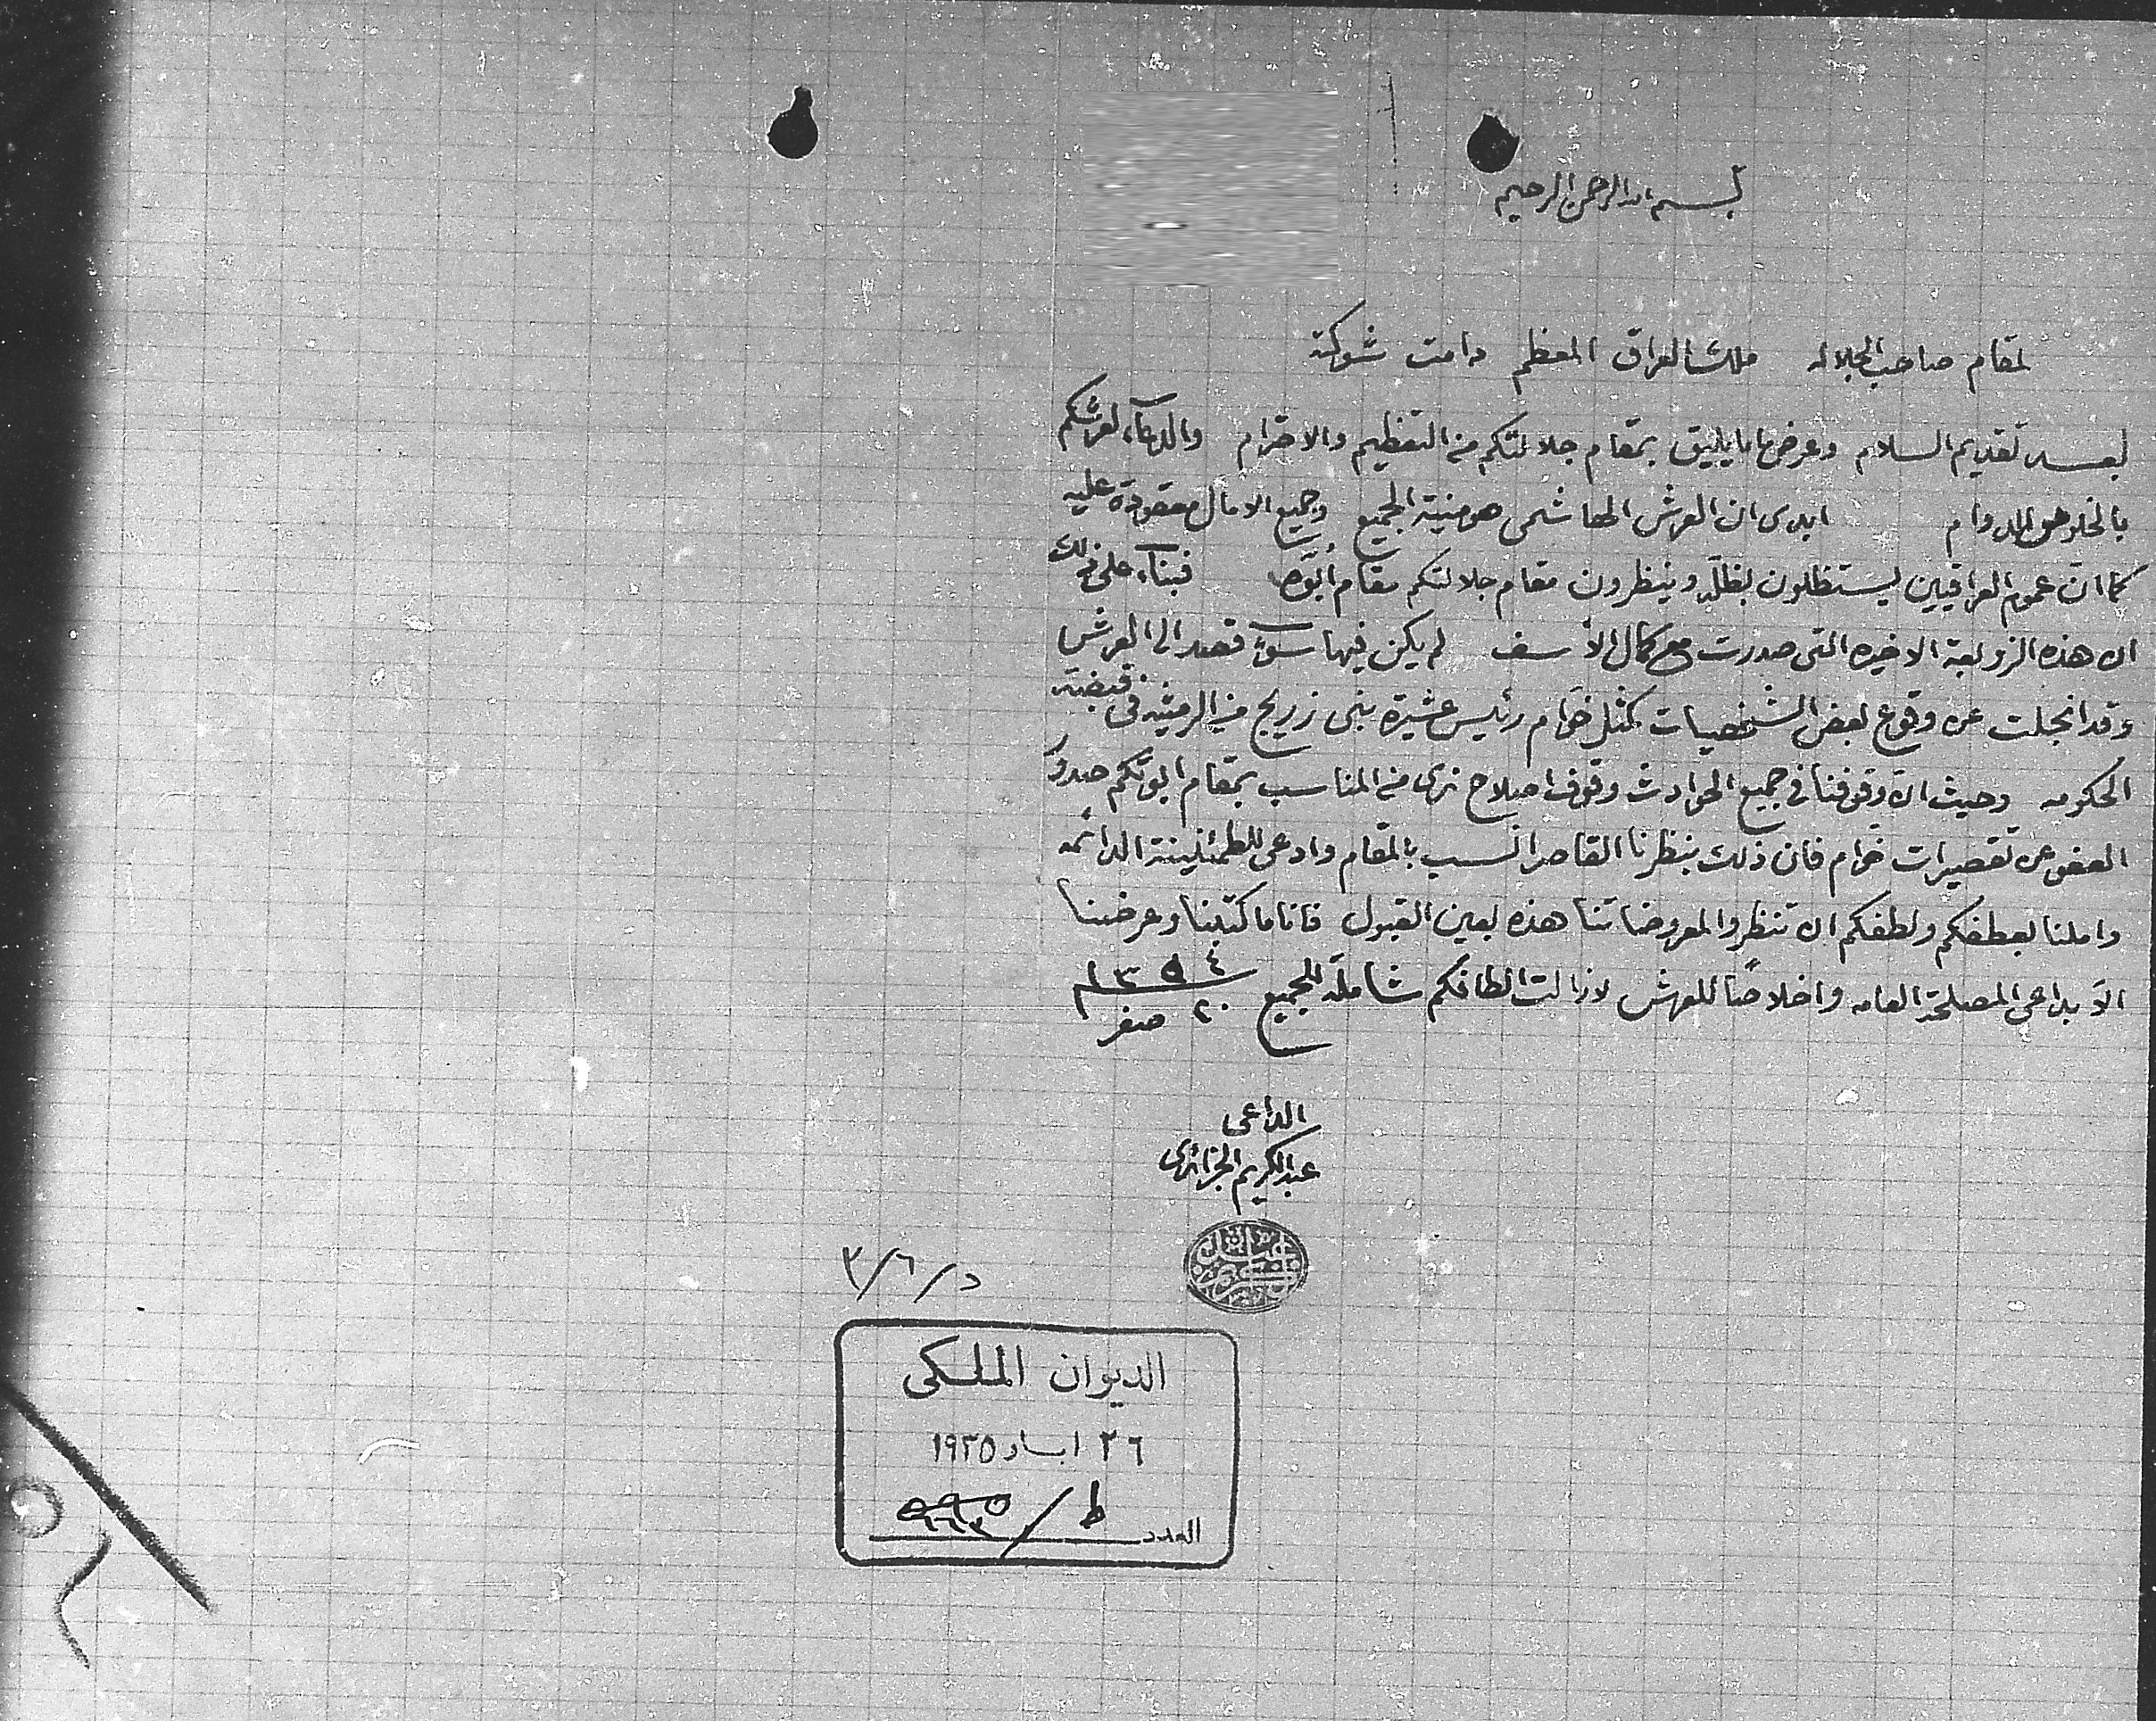 بسم الله الرحمن الرحيم
لمقام صاحب الجلاله ملك العراق المعظم دامت شوكته
بعد تقديم السلام وعرض ما يليق بمقام جلالتكم من التعظيم والاحترام والدعاء لعرشكم
بالخلوص والدوام ابدى ان العرش الهاشمى هو منية الجميع وجميع الامال معقودة عليه
كما ان عموم العراقيين يستظلون بظله وينظرون مقام جلالتكم مقام ابوة فبناء على ذلك
ان هذه الزوبعة الاخيره التى صدرت مع كمال الأسف لم يكن فيها سوء قصد الى العرش
وقد انجلت عن وقوع بعض الشخصيات كمثل خوام رئيس عشيرة بنى زريج من الرميثه فى قبضة
الحكومه وحيث ان وقوفنا فى جميع الحوادث وقوف اصلاح نرى من المناسب بمقام ابوتكم صدور
العفو عن تقصيرات خوام فان ذلك بنظرنا القاصر انسب بالمقام وادعى للطمئنينة الدائمه
واملنا بعطفكم ولطفكم ان تنظروا لمعروضاتنا هذه بعين القبول فانا ما كتبنا وعرضنا
الا بداعى المصلحة العامه واخلاصًا للعرش لا زالت الطافكم شاملة للجميع ٢٠ صفر ١٣٥٤
الداعى
عبد الكريم الجزائرى
د/٦/٣
الديوان الملكى
٢٦ ايار ١٩٣٥
العدد ط/